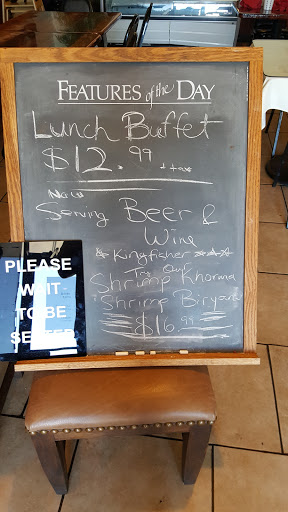 FEATURES of the DAY
Lunch Buffet
$12.99 +tax
Now
Serving Beer &
Wine
Kingfisher
Try Our
Shrimp Khorma
Shrimp Biryani
$16.99
PLEASE
WAIT
TO BE
SEATED